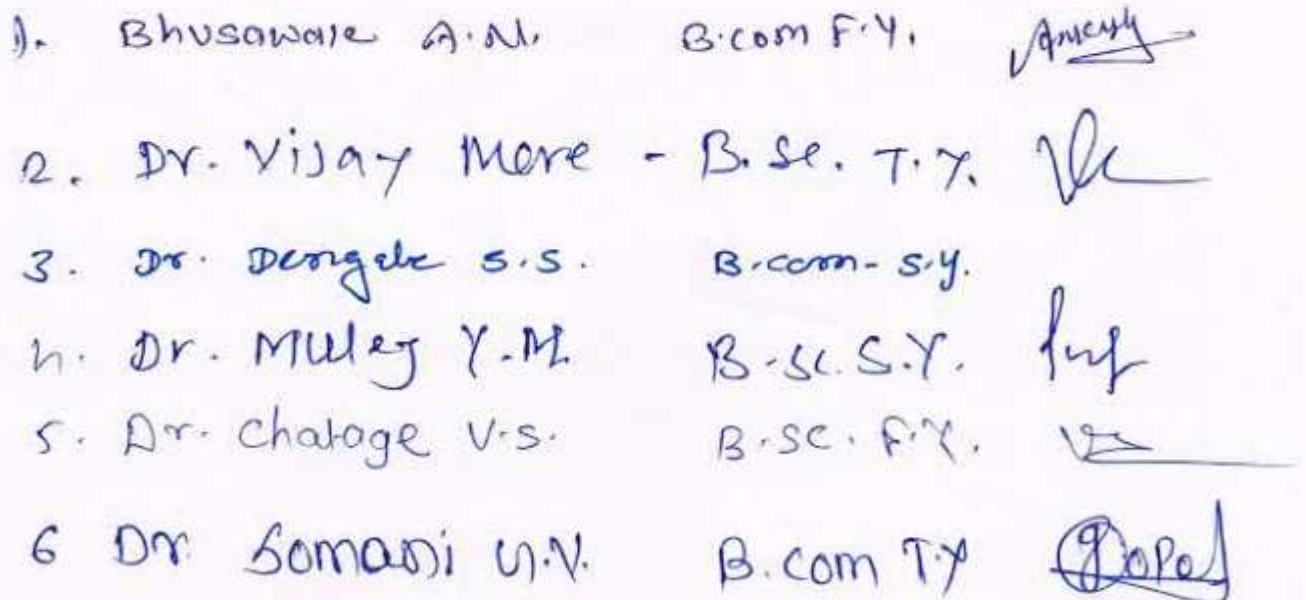 1). Bhusaware A.N. B.com F.Y.
2. Dr. Vijay More - B.Sc. T.Y.
3. Dr. Dengale S.S. B.com - S.Y.
4. Dr. Muley Y.M. B.Sc. S.Y.
5. Dr. Chatage V.S. B.SC. F.Y.
6 Dr. Somani B.com T.Y